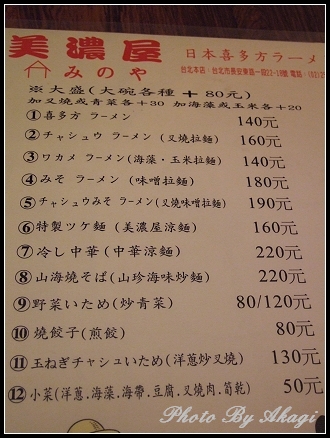 美濃屋
日本喜多方ラーメ
みのや
台北本店:台北市長安東路一段22-10號 電話:(02)2
※大盛(大碗各種+80元)
加叉燒或青菜各+30 加海藻或玉米各+20
①喜多方 ラーメン 140元
②チャシュウ ラーメン(叉燒拉麵) 160元
③ワカメ ラーメン(海藻・玉米拉麵) 140元
④みそ ラーメン (味噌拉麵) 180元
⑤チャシュウみそ ラーメン(叉燒味噌拉麵) 190元
⑥特製ツケ麵(美濃屋涼麵) 160元
⑦冷し中華(中華涼麵) 220元
⑧山海燒そば(山珍海味炒麵) 220元
⑨野菜いため(炒青菜) 80/120元
⑩燒餃子(煎餃) 80元
⑪玉ねぎチャシュいため(洋蔥炒叉燒) 130元
⑫小菜(洋蔥.海藻.海帶.豆腐.叉燒肉.筍乾) 50元
Photo By Akagi